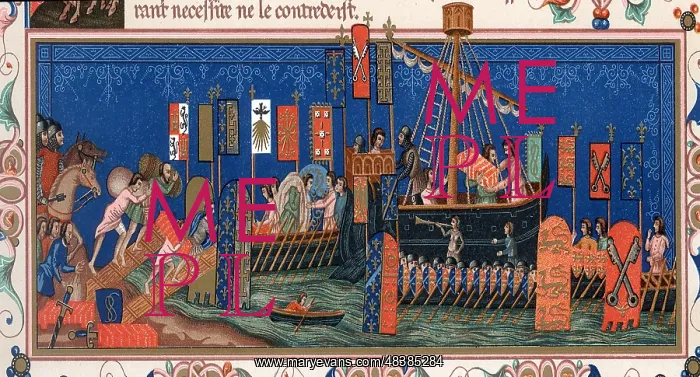 rant necessite ne le contredeist.
ME
PL
ME
PL
www.maryevans.com/48385284